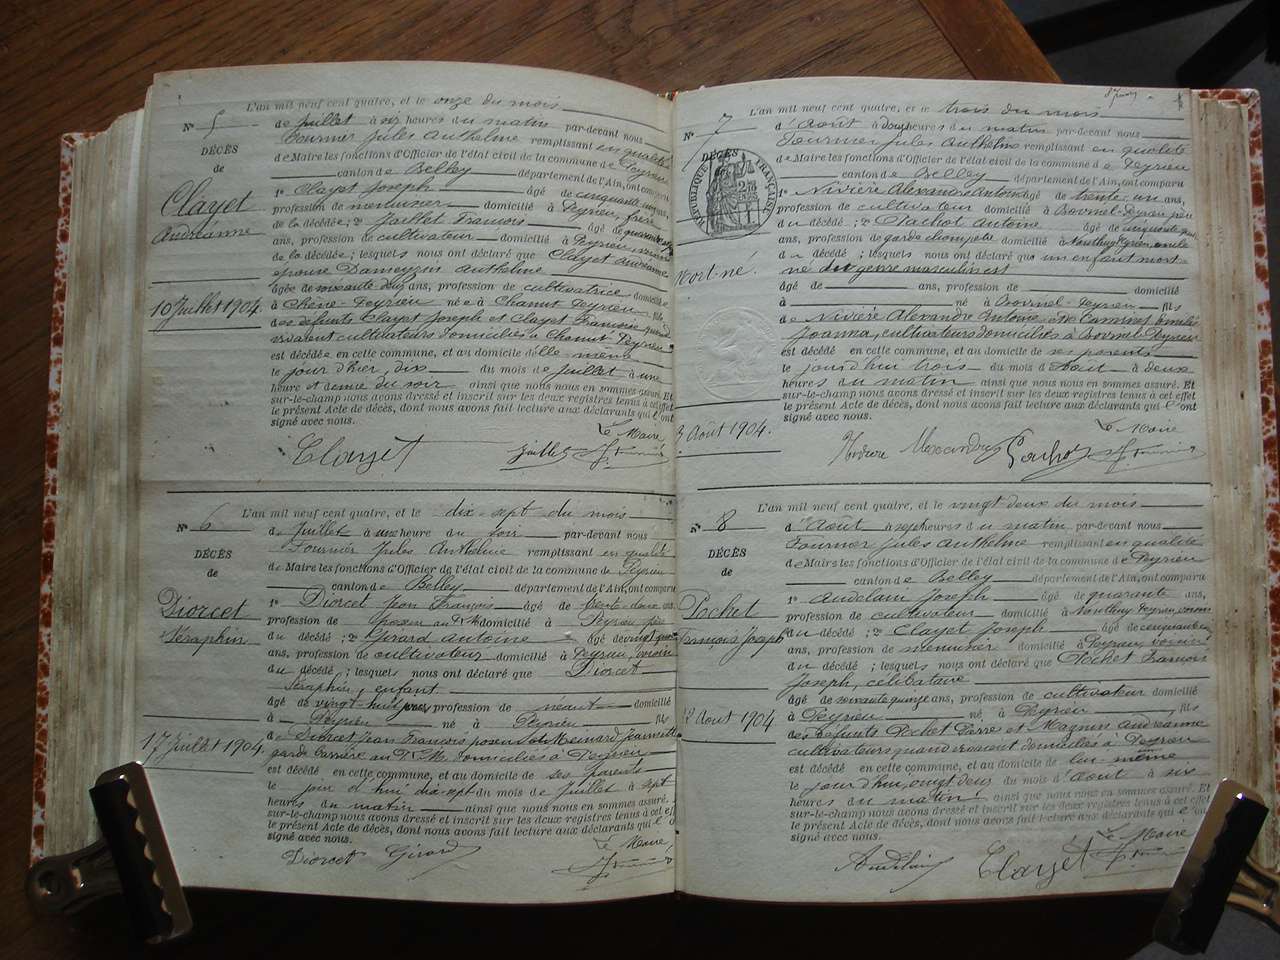 L'an mil neuf cent quatre, et le onze du mois
N° 5
de Juillet à six heures du matin par-devant nous
DÉCÈS
Fournier Jules Anthelme remplissant en qualité
de
de Maire les fonctions d'Officier de l'état civil de la commune de Peyrieu
canton de Belley département de l'Ain, ont comparu
Clayet
1° Clayet Joseph âgé de cinquante
Andréanne
profession de menuisier domicilié à Peyrieu, frère
de la décédée; 2° Jaillet François âgé de quarante
ans, profession de cultivateur domicilié à Peyrieu, voisin
de la décédée; lesquels nous ont déclaré que Clayet Andréanne
épouse Dameyzin Anthelme
âgée de soixante deux ans, profession de cultivatrice domiciliée
10 Juillet 1904.
à Chêne-Peyrieu née à Chanut Peyrieu fille
des défunts Clayet Joseph et Clayet Françoise quand
vivaient cultivateurs domiciliés à Chanut Peyrieu
est décédée en cette commune, et au domicile d'elle-même
le jour d'hier, dix du mois de Juillet à une
heure et demie du soir ainsi que nous nous en sommes assuré. Et
sur-le-champ nous avons dressé et inscrit sur les deux registres tenus à cet effet
le présent Acte de décès, dont nous avons fait lecture aux déclarants qui l'ont
signé avec nous.
Le Maire
Clayet Jaillet
L'an mil neuf cent quatre, et le dix-sept du mois
N° 6
de Juillet à une heure du soir par-devant nous
DÉCÈS
Fournier Jules Anthelme remplissant en qualité
de
de Maire les fonctions d'Officier de l'état civil de la commune de Peyrieu
canton de Belley département de l'Ain, ont comparu
Diorcet
1° Diorcet Jean François âgé de trente-deux ans
Séraphin
profession de poseur au domicilié à Peyrieu père
du décédé; 2° Girard Antoine âgé de vingt
ans, profession de cultivateur domicilié à Peyrieu, voisin
du décédé; lesquels nous ont déclaré que Diorcet
Séraphin, enfant
âgé de vingt-huit jours profession de néant domicilié
à Peyrieu né à Peyrieu fils
17 Juillet 1904.
de Diorcet Jean François poseur et de Meinard Jeannette
garde barrière au domiciliés à Peyrieu
est décédé en cette commune, et au domicile de ses parents
le jour d'hui dix-sept du mois de Juillet à sept
heures du matin ainsi que nous nous en sommes assuré.
sur-le-champ nous avons dressé et inscrit sur les deux registres tenus à cet
le présent Acte de décès, dont nous avons fait lecture aux déclarants qui
signé avec nous.
Le Maire,
Diorcet Girard
L'an mil neuf cent quatre, et le trois du mois
N° 7
d'Août à douze heures du matin par-devant nous
Fournier Jules Anthelme remplissant en qualité
de Maire les fonctions d'Officier de l'état civil de la commune de Peyrieu
DÉCÈS
canton de Belley département de l'Ain, ont comparu
RÉPUBLIQUE FRANÇAISE
1° Nivière Alexandre Antoine âgé de trente-un ans,
profession de cultivateur domicilié à Peyrieu père
du décédé; 2° Pachot Antoine âgé de cinquante
ans, profession de garde champêtre domicilié à Peyrieu, oncle
du décédé; lesquels nous ont déclaré que un enfant mort
Mort-né.
né du genre masculin est
âgé de ans, profession de domicilié
à né à Peyrieu fils
de Nivière Alexandre Antoine et de
Joanna, cultivateurs domiciliés à Peyrieu
est décédé en cette commune, et au domicile de ses parents
le jourd'hui trois du mois d'Août à deux
heures du matin ainsi que nous nous en sommes assuré. Et
sur-le-champ nous avons dressé et inscrit sur les deux registres tenus à cet effet
le présent Acte de décès, dont nous avons fait lecture aux déclarants qui l'ont
signé avec nous.
3 Août 1904.
Le Maire
Nivière Alexandre Pachot
L'an mil neuf cent quatre, et le vingt deux du mois
N° 8
d'Août à sept heures du matin par-devant nous
DÉCÈS
Fournier Jules Anthelme remplissant en qualité
de
de Maire les fonctions d'Officier de l'état civil de la commune de Peyrieu
canton de Belley département de l'Ain, ont comparu
Pochet
1° Audelain Joseph âgé de quarante ans,
François Joseph
profession de cultivateur domicilié à Peyrieu, voisin
du décédé; 2° Clayet Joseph âgé de cinquante
ans, profession de menuisier domicilié à Peyrieu, voisin
du décédé; lesquels nous ont déclaré que Pochet François
Joseph, célibataire
âgé de soixante quinze ans, profession de cultivateur domicilié
22 Août 1904
à Peyrieu né, à Peyrieu, fils
des défunts Pochet Pierre et Magnin Andréanne
cultivateurs quand vivaient domiciliés à Peyrieu
est décédé en cette commune, et au domicile de lui-même
le jour d'hui, vingt deux du mois d'Août à six
heures du matin ainsi que nous nous en sommes assuré. Et
sur-le-champ nous avons dressé et inscrit sur les deux registres tenus à cet effet
le présent Acte de décès, dont nous avons fait lecture aux déclarants qui
signé avec nous.
Le Maire
Audelain Clayet